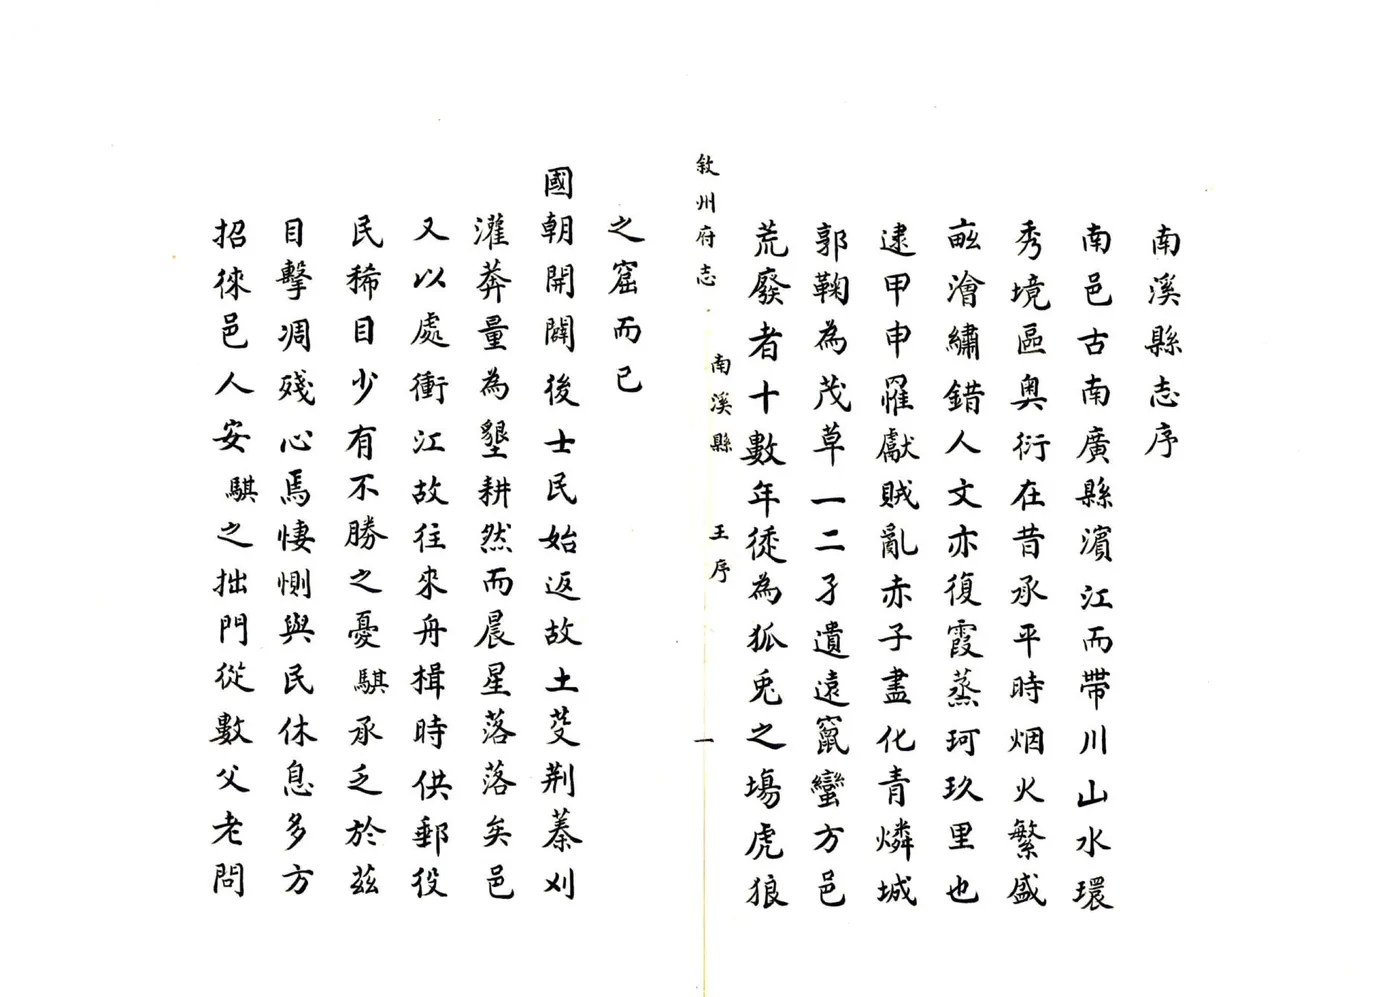 南溪縣志序
南邑古南廣縣濵江而帶川山水環
秀境區奥衍在昔承平時烟火繁盛
畝澮繡錯人文亦復霞蒸珂玖里也
逮甲申罹獻賊亂赤子盡化青燐城
郭鞠為茂草一二孑遺遠竄蠻方邑
荒廢者十數年徒為狐兎之場虎狼
敘州府志
南溪縣
王序
一
之窟而已
國朝開闢後士民始返故土芟荆蓁刈
灌莽量為墾耕然而晨星落落矣邑
又以處衝江故往來舟楫時供郵役
民稀目少有不勝之憂騏承乏於茲
目擊凋殘心焉悽惻與民休息多方
招徠邑人安騏之拙門從數父老問